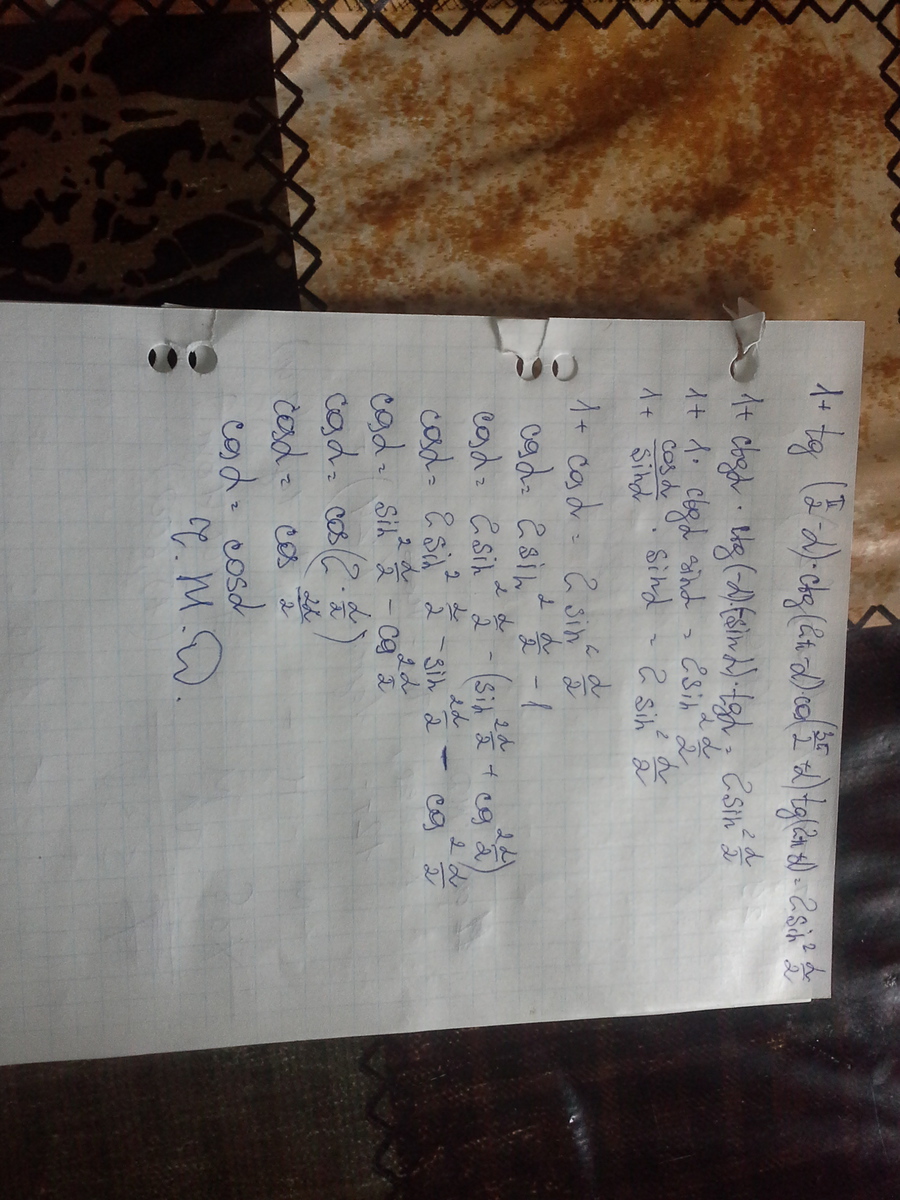 1 + tg (π/2 - α) · ctg(2π - α) cos(3π/2 + α) tg(2π + α) = 2 sin² α/2
1 + ctgα · ctg(-α) · (sin α) · tgα = 2 sin² α/2
1 + 1 · ctgα sinα = 2 sin² α/2
1 + cosα/sinα · sinα = 2 sin² α/2
1 + cosα = 2 sin² α/2
cosα = 2 sin² α/2 - 1
cosα = 2 sin² α/2 - (sin² α/2 + cos² α/2)
cosα = 2 sin² α/2 - sin² α/2 - cos² α/2
cosα = sin² α/2 - cos² α/2
cosα = cos(2 · α/2)
cosα = cos 2α/2
cosα = cosα